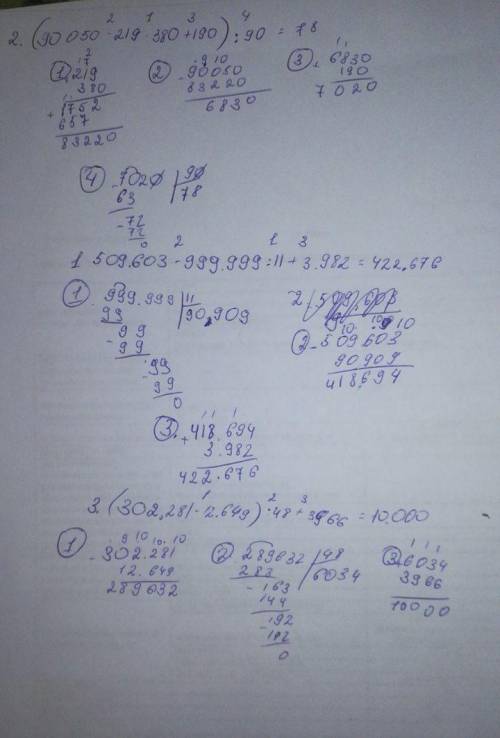 2. (90 050 - 219 · 380 + 190) : 90 = 78
1) 219
380
+ 1752
657
83220
2) - 90050
83220
6830
3) + 6830
190
7020
4) - 7020 | 90
63 | 78
- 72
72
0
1 509.603 - 999.999 : 11 + 3.982 = 422.676
1) 999.999 | 11
99 | 90.909
- 99
99
- 99
99
0
2) - 509.603
90909
418.694
3. + 418.694
3.982
422.676
3. (302,281 - 12.649) : 48 + 3966 = 10.000
1) - 302.281
12.649
289632
2) - 289632 | 48
283 | 6034
- 163
144
- 192
- 192
0
3. 6034
3966
10000